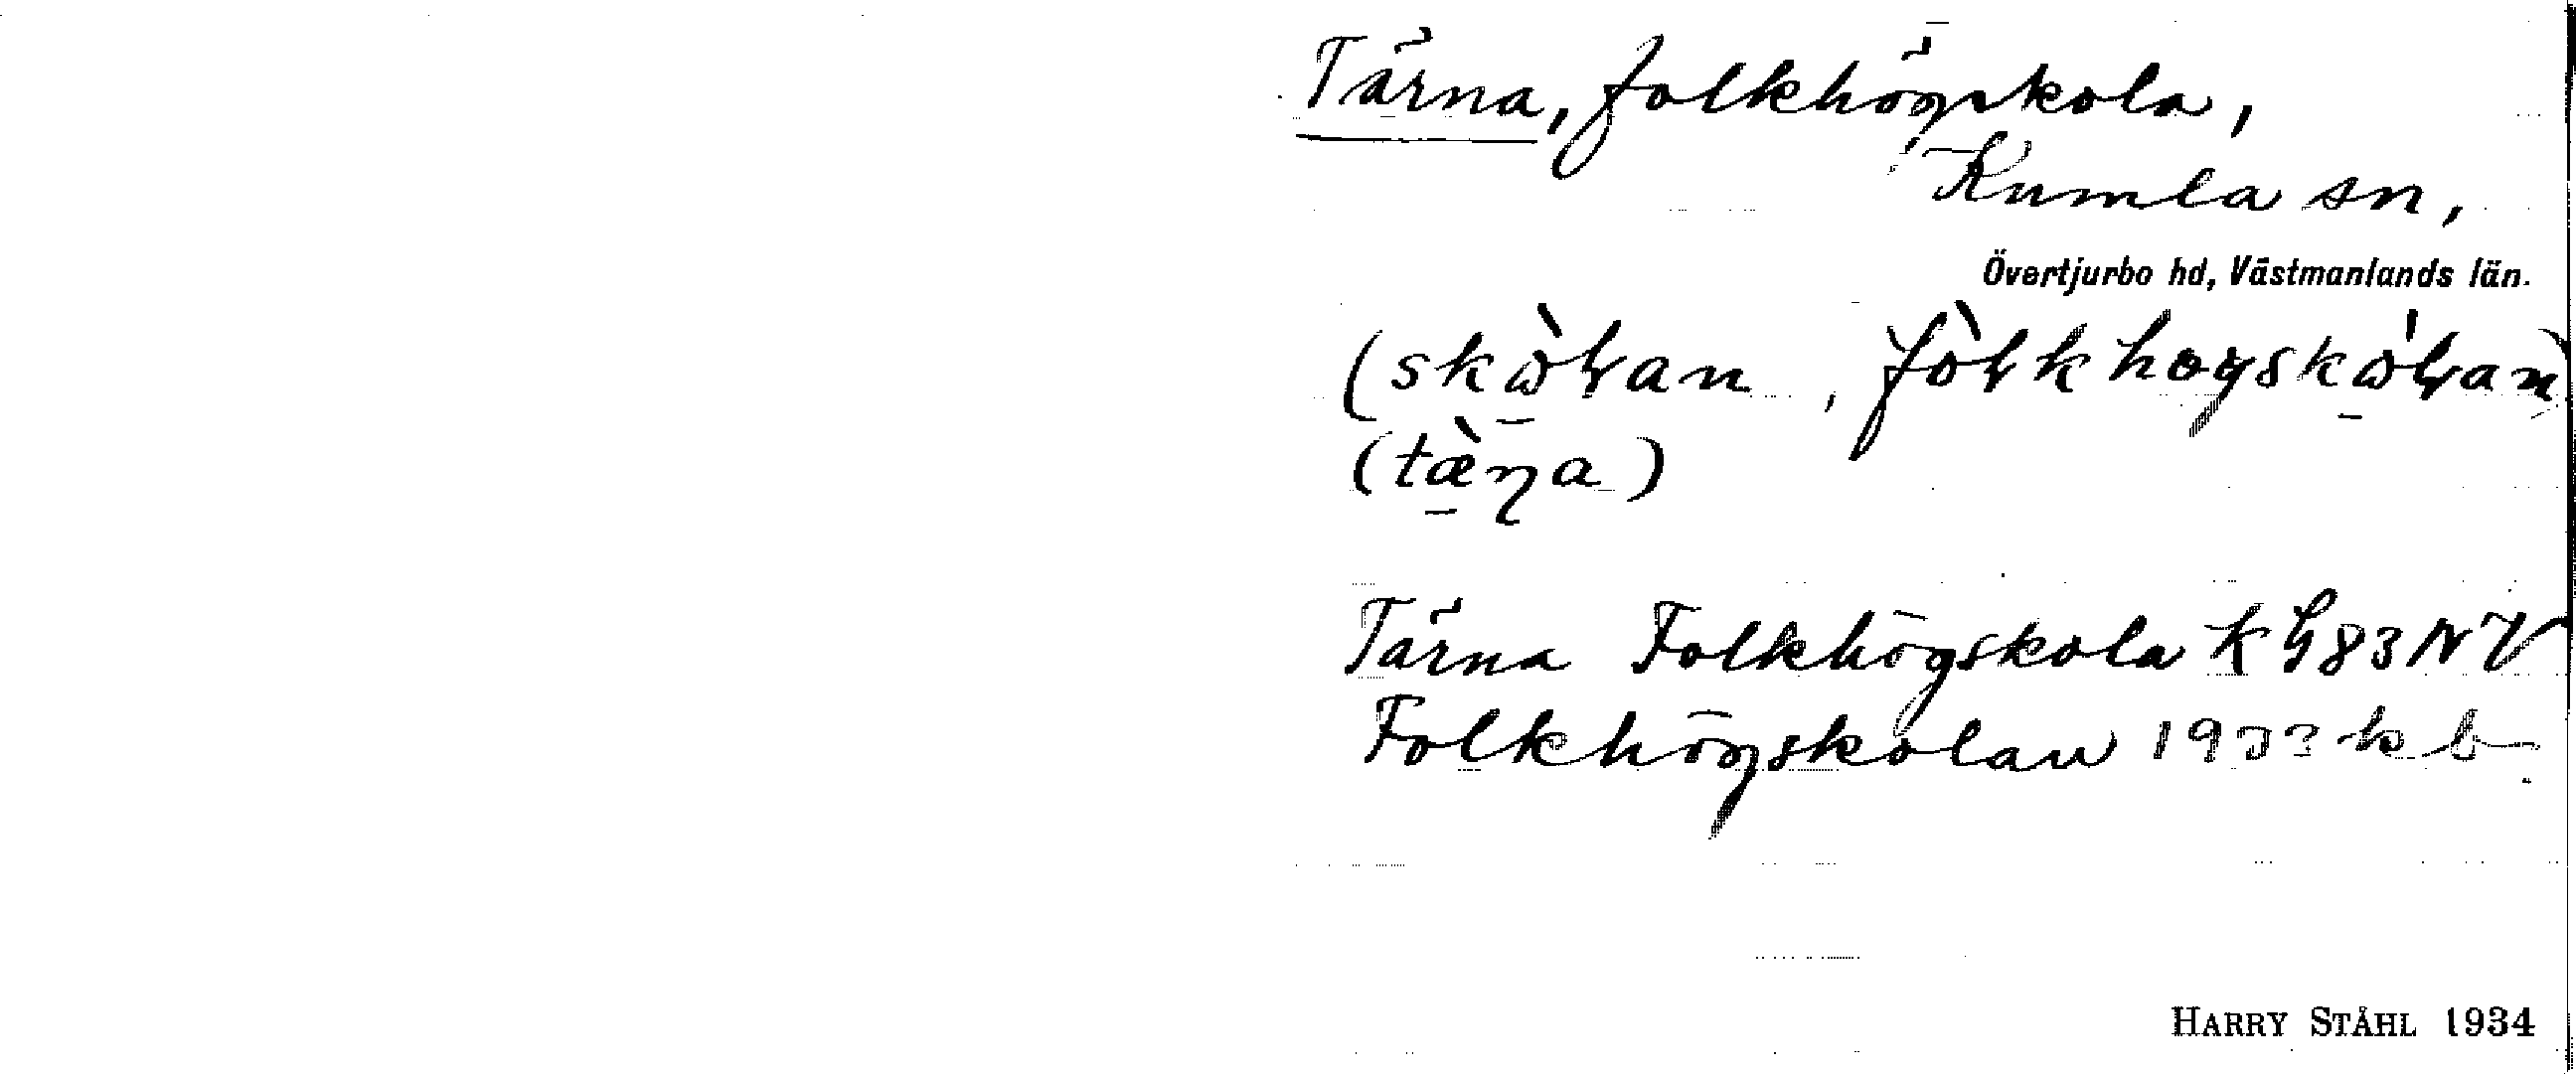 Tärna, folkhögskola,
Kumla sn,
Övertjurbo hd, Västmanlands län.
(skɷ̀ɽan, fòɽkhøgskɷ̀ɽan)
(tæ̀ɳa)
Tärna Folkhögskola K G83 NV
Folkhögskolan 1933 kb
HARRY STÅHL 1934